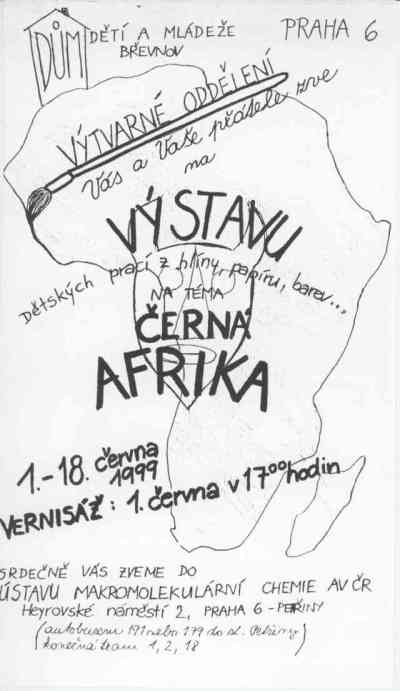 DŮM DĚTÍ A MLÁDEŽE
BŘEVNOV
PRAHA 6
VÝTVARNÉ ODDĚLENÍ
Vás a Vaše přátele zve
na
VÝSTAVU
Dětských prací z hlíny, papíru, barev...,
NA TÉMA
ČERNÁ
AFRIKA
1.-18. června
1999
VERNISÁŽ: 1. června v 17⁰⁰ hodin
SRDEČNĚ VÁS ZVEME DO
ÚSTAVU MAKROMOLEKULÁRNÍ CHEMIE AV ČR
Heyrovské náměstí 2, PRAHA 6 - PETŘINY
(autobusem 191 nebo 179 do st. Petřiny)
konečná tram 1, 2, 18